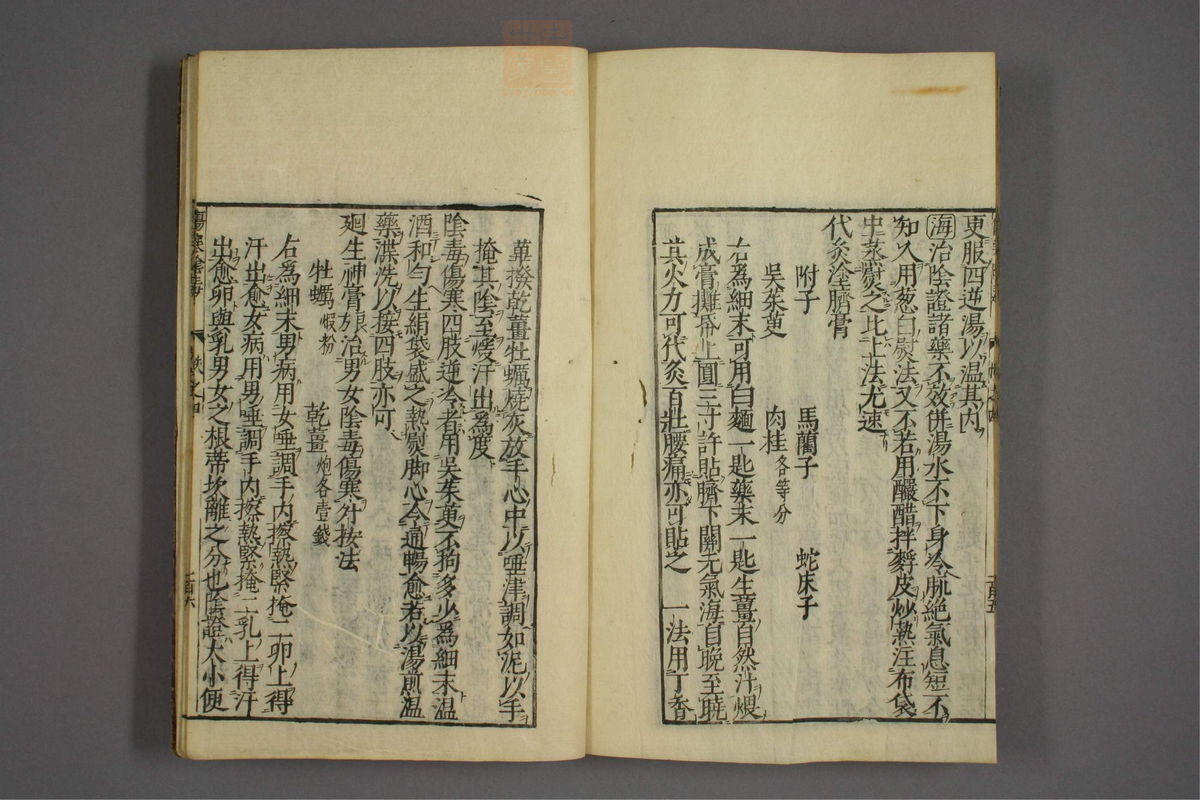 更服四逆湯以温其内
海治陰證諸藥不效併湯水不下身冷脉絶氣息短不
知人用葱白熨法又不若用釅醋拌麩皮炒熱注布袋
中蒸熨之比上法尤速
代灸塗臍膏
附子 馬藺子 蛇床子
吳茱萸 肉桂各等分
右為細末可用白麵一匙藥末一匙生薑自然汁煨
成膏攤帋上圓三寸許貼臍下關元氣海自晩至曉
其火力可代灸百壯腰痛亦可貼之 一法用丁香
一百五
蓽撥乾薑牡蠣燒灰放手心中以唾津調如泥以手
掩其陰至煖汗出為度
陰毒傷寒四肢逆冷者用吳茱萸不狗多少為細末温
酒和匀生絹袋盛之熱熨脚心令通暢愈若以湯煎温
藥渫洗以按四肢亦可
廻生神膏方治男女陰毒傷寒外按法
牡蠣煆粉 乾薑炮各壹錢
右為細末男病用女唾調手内擦熱緊掩二卵上得
汗出愈女病用男唾調手内擦熱緊掩二乳上得汗
出愈卵與乳男女之根蒂坎離之分也陰證大小便
傷寒陰毒 一百六